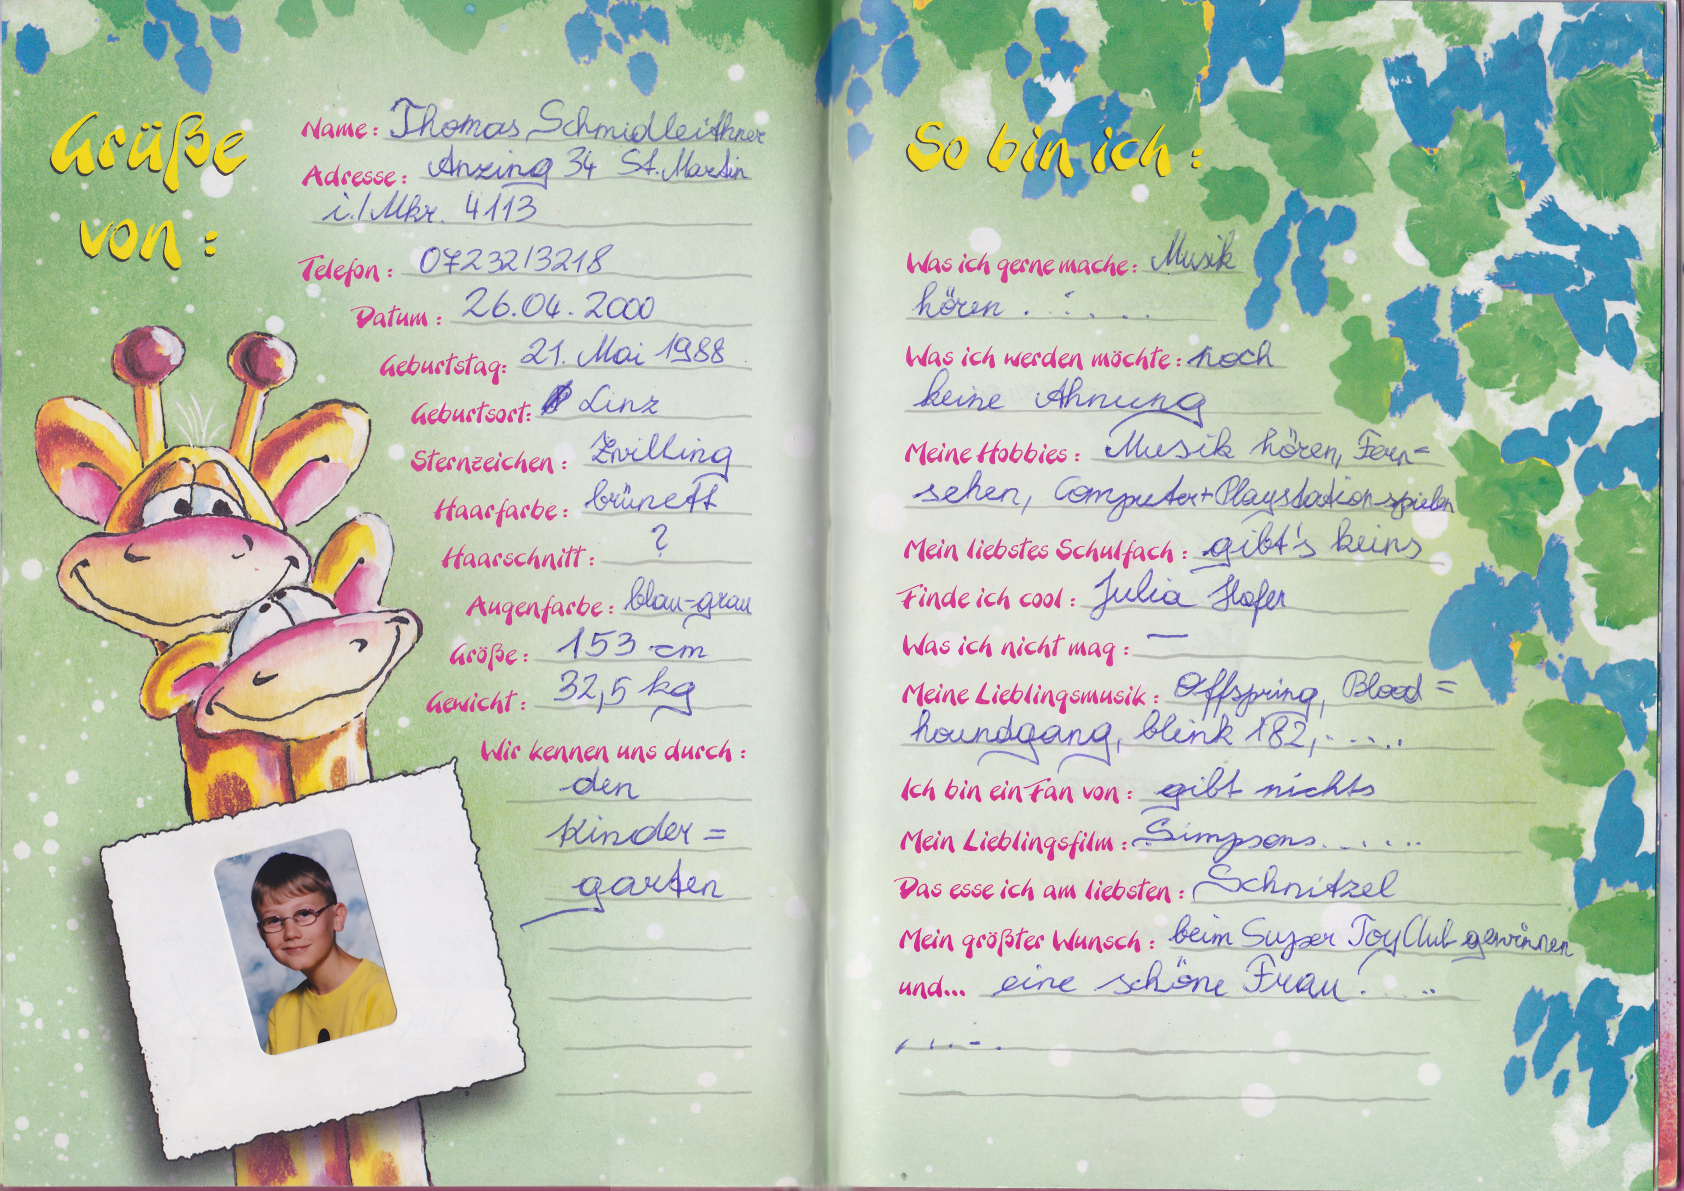 Grüße
von :
Name : Thomas Schmidleithner
Adresse : Anzing 34 St. Martin
i./Mkr. 4113
Telefon : 07232/3218
Datum : 26.04.2000
Geburtstag: 21. Mai 1988
Geburtsort: Linz
Sternzeichen : Zwilling
Haarfarbe : brünett
Haarschnitt : ?
Augenfarbe : blau-grau
Größe : 153 cm
Gewicht : 32,5 kg
Wir kennen uns durch :
den
Kinder=
garten
So bin ich :
Was ich gerne mache : Musik
hören . . . . .
Was ich werden möchte : noch
keine Ahnung
Meine Hobbies : Musik hören, Fern=
sehen, Computer+Playstation spielen
Mein liebstes Schulfach : gibt's keins
Finde ich cool : Julia Hofer
Was ich nicht mag : —
Meine Lieblingsmusik : Offspring, Blood=
houndgang, blink 182, . . . . .
Ich bin ein Fan von : gibt nichts
Mein Lieblingsfilm : Simpsons. . . . . .
Das esse ich am liebsten : Schnitzel
Mein größter Wunsch : beim Super Toy Club gewinnen
und... eine schöne Frau . . . . .
. . . - .